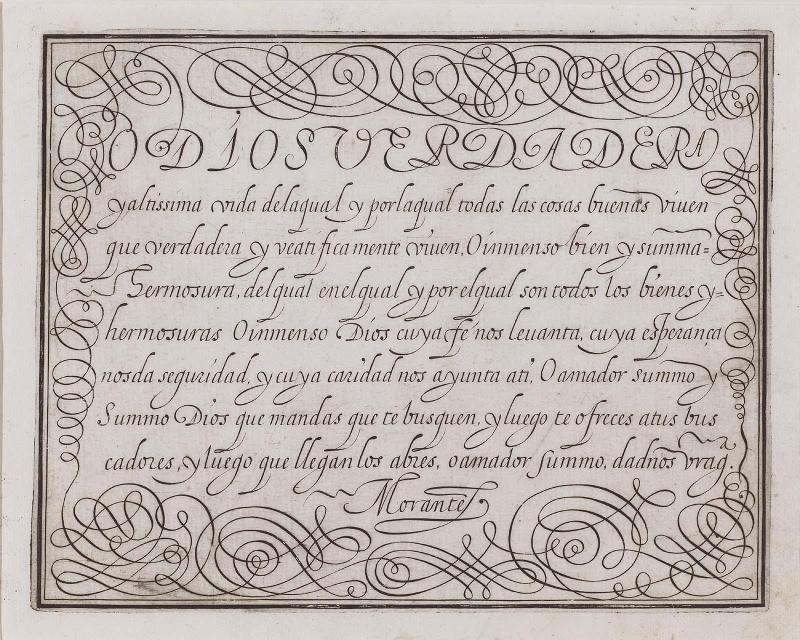 O DIOS VERDADERA
y altissima vida delaqual y porlaqual todas las cosas buenas viuen
que verdadera y veatificamente viuen, O inmenso bien y summa=
hermosura, delqual enelqual y por elqual son todos los bienes y=
hermosuras O inmenso Dios cuya fe nos leuanta, cuya esperança
nosda seguridad, y cuya caridad nos ayunta ati, O amador summo y
Summo Dios que mandas que te busquen, y luego te ofreces atus bus
cadores, y luego que llegan los abres, o amador summo, dadnos vrã g.
Morante